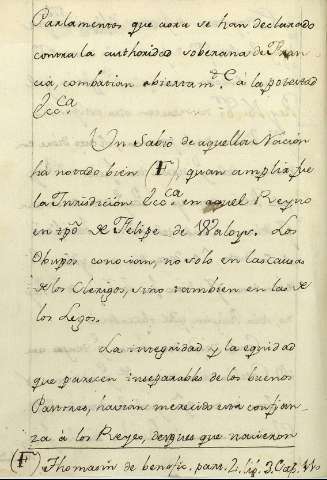 Parlamentos que aora se han declarado
contra la authoridad soberana de Fran
cia, combatian abiertam.te á la potestad
Ecc.ca
Un Sabio de aquella Nación
ha notado bien (F), quan amplia fue
la Jurisdicion Ecc.ca en aquel Reyno
en tpõ de Felipe de Waloys. Los
Obispos conocian, no solo en las causas
de los Clerigos, sino tambien en las de
los Legos.
La integridad y la equidad
que parecen inseparables de los buenos
Pastores, havian merecido esta confian-
za á los Reyes, despues que nacieron
(F) Thomasin de benefic. part. 2. lib. 3. Cap. 110